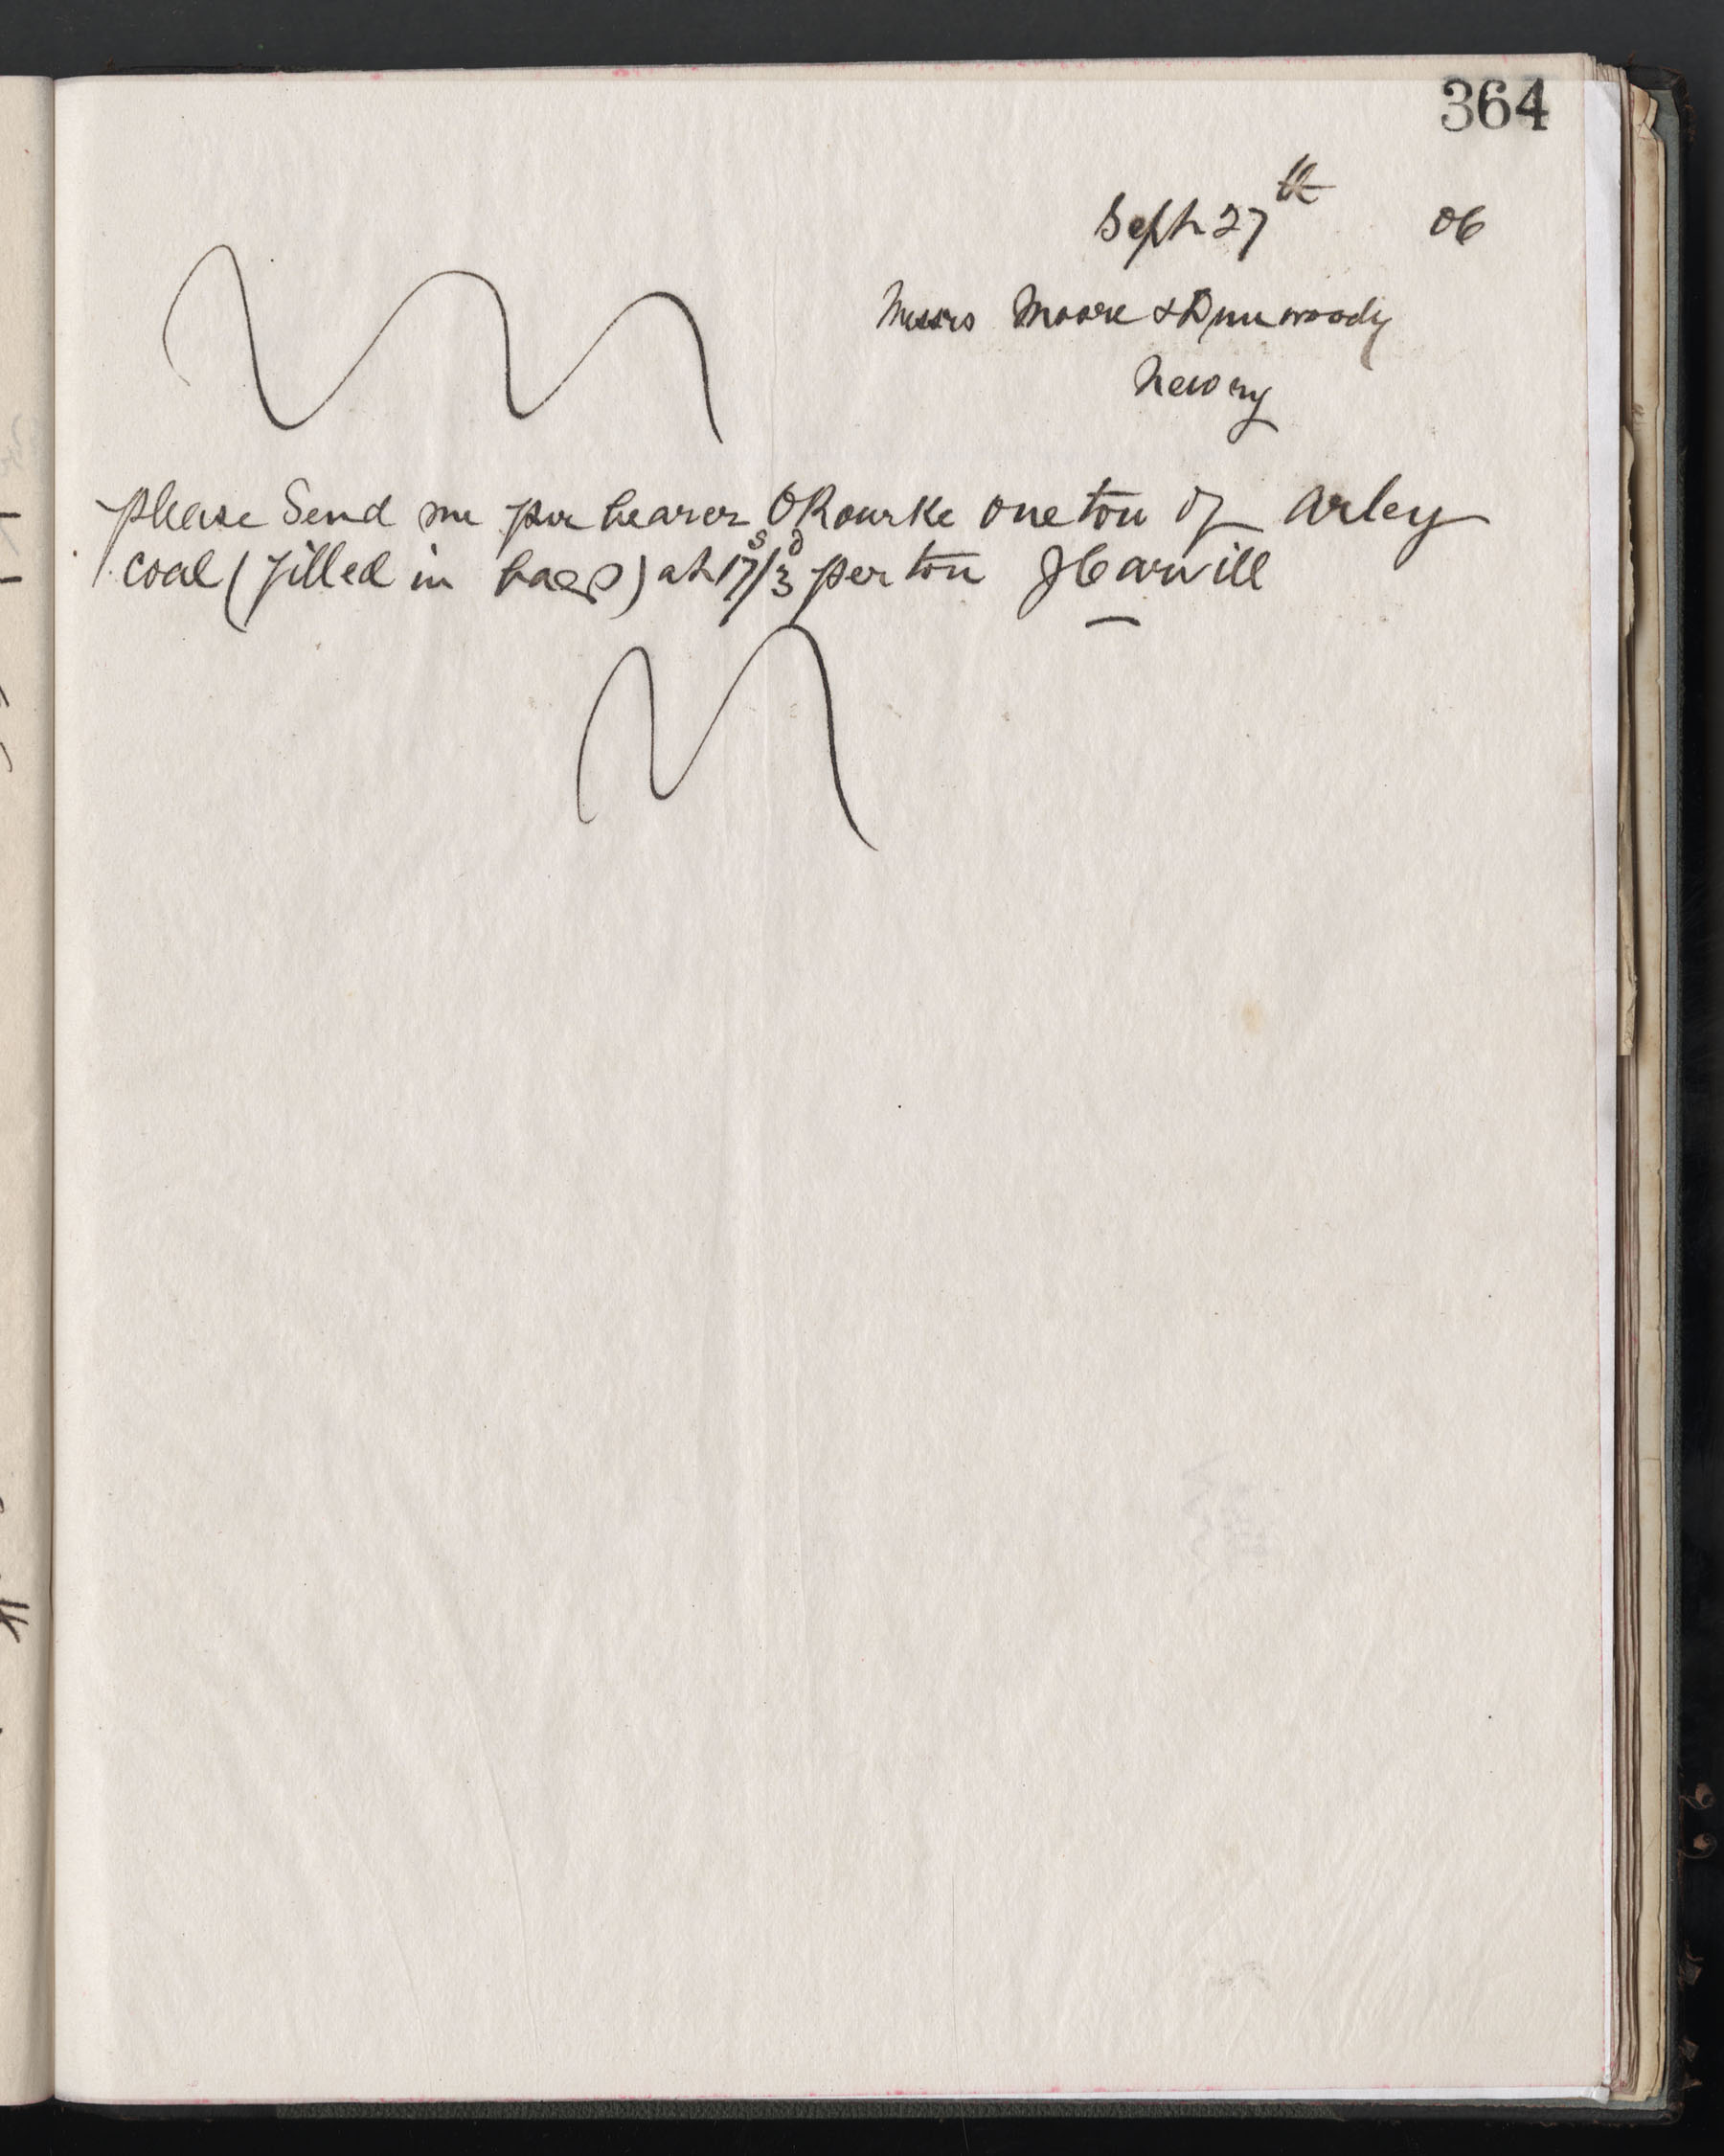 364
Sept 27th 06
Messrs Moore & Dunwoody
Newry
please Send me per bearer ORourke one ton of Arley
coal (filled in bags) at 17s/3d per ton JCarvill